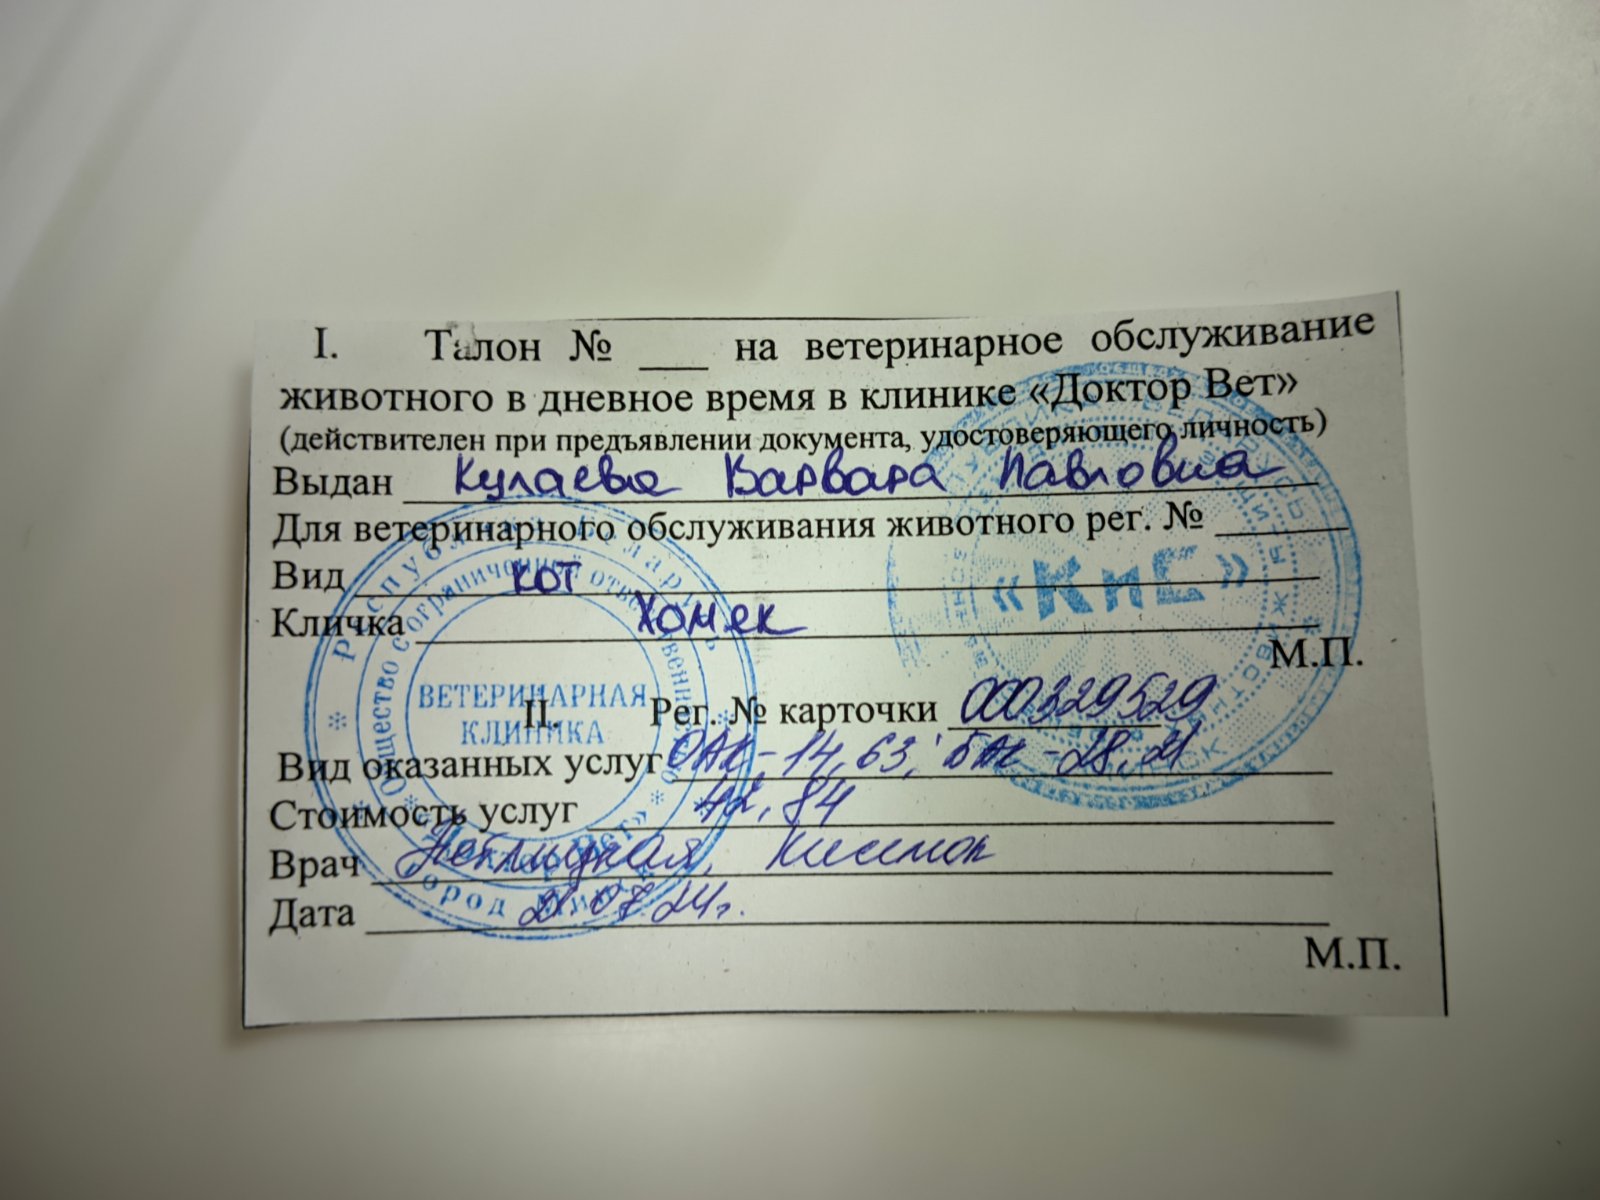 I. Талон № ___ на ветеринарное обслуживание
животного в дневное время в клинике «Доктор Вет»
(действителен при предъявлении документа, удостоверяющего личность)
Выдан Кулаева Варвара Павловна
Для ветеринарного обслуживания животного рег. № ______
Вид кот
Кличка Хомек
М.П.
«КиС»
II. Рег. № карточки 000329529
Вид оказанных услуг ОАК - 14,63; БАК - 28,21
Стоимость услуг 42,84
Врач
Дата 21.07.24г.
М.П.
Республика Беларусь
Общество с ограниченной ответственностью
ВЕТЕРИНАРНАЯ
КЛИНИКА
город Минск